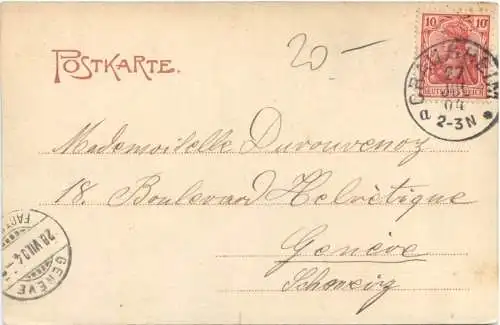 20.—
POSTKARTE.
10 10
DEUTSCHES REICH
CRAILSHEIM
27 JUL 04
2-3N
Mademoiselle Duvouvenoz
18. Boulevard Helvètique
Genève
Schweiz
GENÈVE
28.VII.04